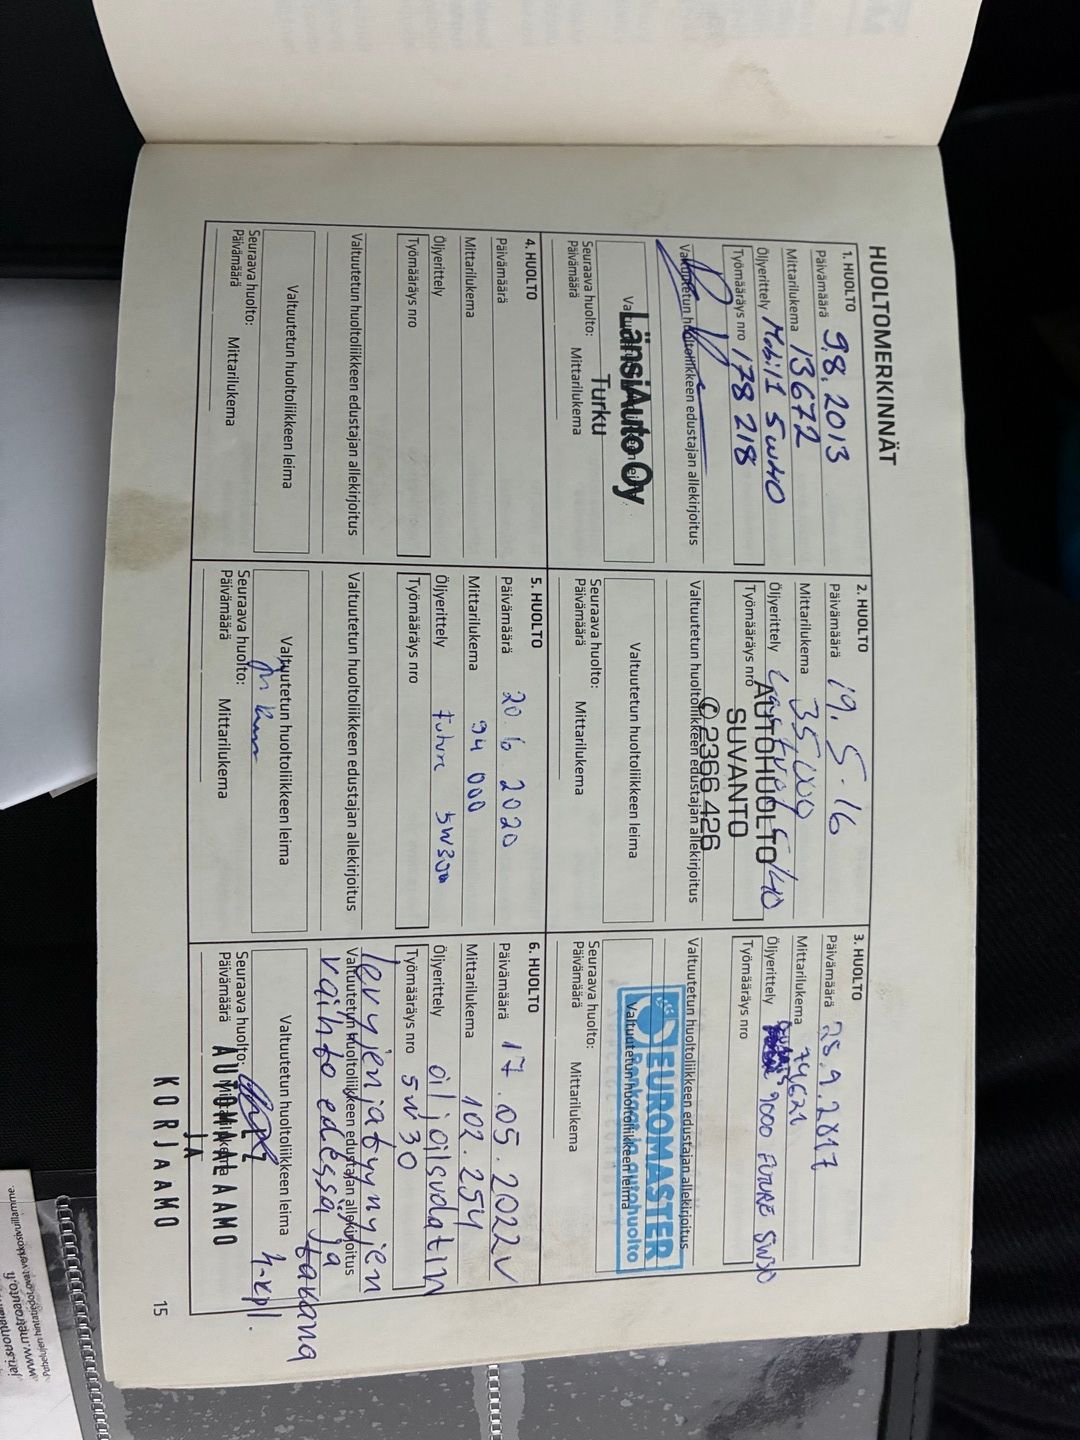 HUOLTOMERKINNÄT
1. HUOLTO
Päivämäärä 9.8.2013
Mittarilukema 13672
Öljyerittely Mobil1 5W40
Työmääräys nro 178 218
Valtuutetun huoltoliikkeen edustajan allekirjoitus
LänsiAuto Oy
Turku
Seuraava huolto:
Päivämäärä Mittarilukema
2. HUOLTO
Päivämäärä 19.5.16
Mittarilukema 35 000
Öljyerittely 5/40
Työmääräys nro
AUTOHUOLTO
SUVANTO
2366 426
Valtuutetun huoltoliikkeen edustajan allekirjoitus
Valtuutetun huoltoliikkeen leima
Seuraava huolto:
Päivämäärä Mittarilukema
3. HUOLTO
Päivämäärä 25.9.2017
Mittarilukema 74621
Öljyerittely 9000 FUTURE 5W30
Työmääräys nro
Valtuutetun huoltoliikkeen edustajan allekirjoitus
EUROMASTER
Renkaat ja autohuolto
Valtuutetun huoltoliikkeen leima
Seuraava huolto:
Päivämäärä Mittarilukema
4. HUOLTO
Päivämäärä
Mittarilukema
Öljyerittely
Työmääräys nro
Valtuutetun huoltoliikkeen edustajan allekirjoitus
Valtuutetun huoltoliikkeen leima
Seuraava huolto:
Päivämäärä Mittarilukema
5. HUOLTO
Päivämäärä 20.6.2020
Mittarilukema 94 000
Öljyerittely future 5W30
Työmääräys nro
Valtuutetun huoltoliikkeen edustajan allekirjoitus
Valtuutetun huoltoliikkeen leima
Seuraava huolto:
Päivämäärä Mittarilukema
6. HUOLTO
Päivämäärä 17.05.2022v
Mittarilukema 102.254
Öljyerittely öljöilsvdatin
Työmääräys nro 5W30
levyjenjatyynyjen
Valtuutetun huoltoliikkeen edustajan allekirjoitus
vaihto edessä ja takana
Valtuutetun huoltoliikkeen leima 4-kpl.
Seuraava huolto:
Päivämäärä Mittarilukema
JA
KORJAAMO
15